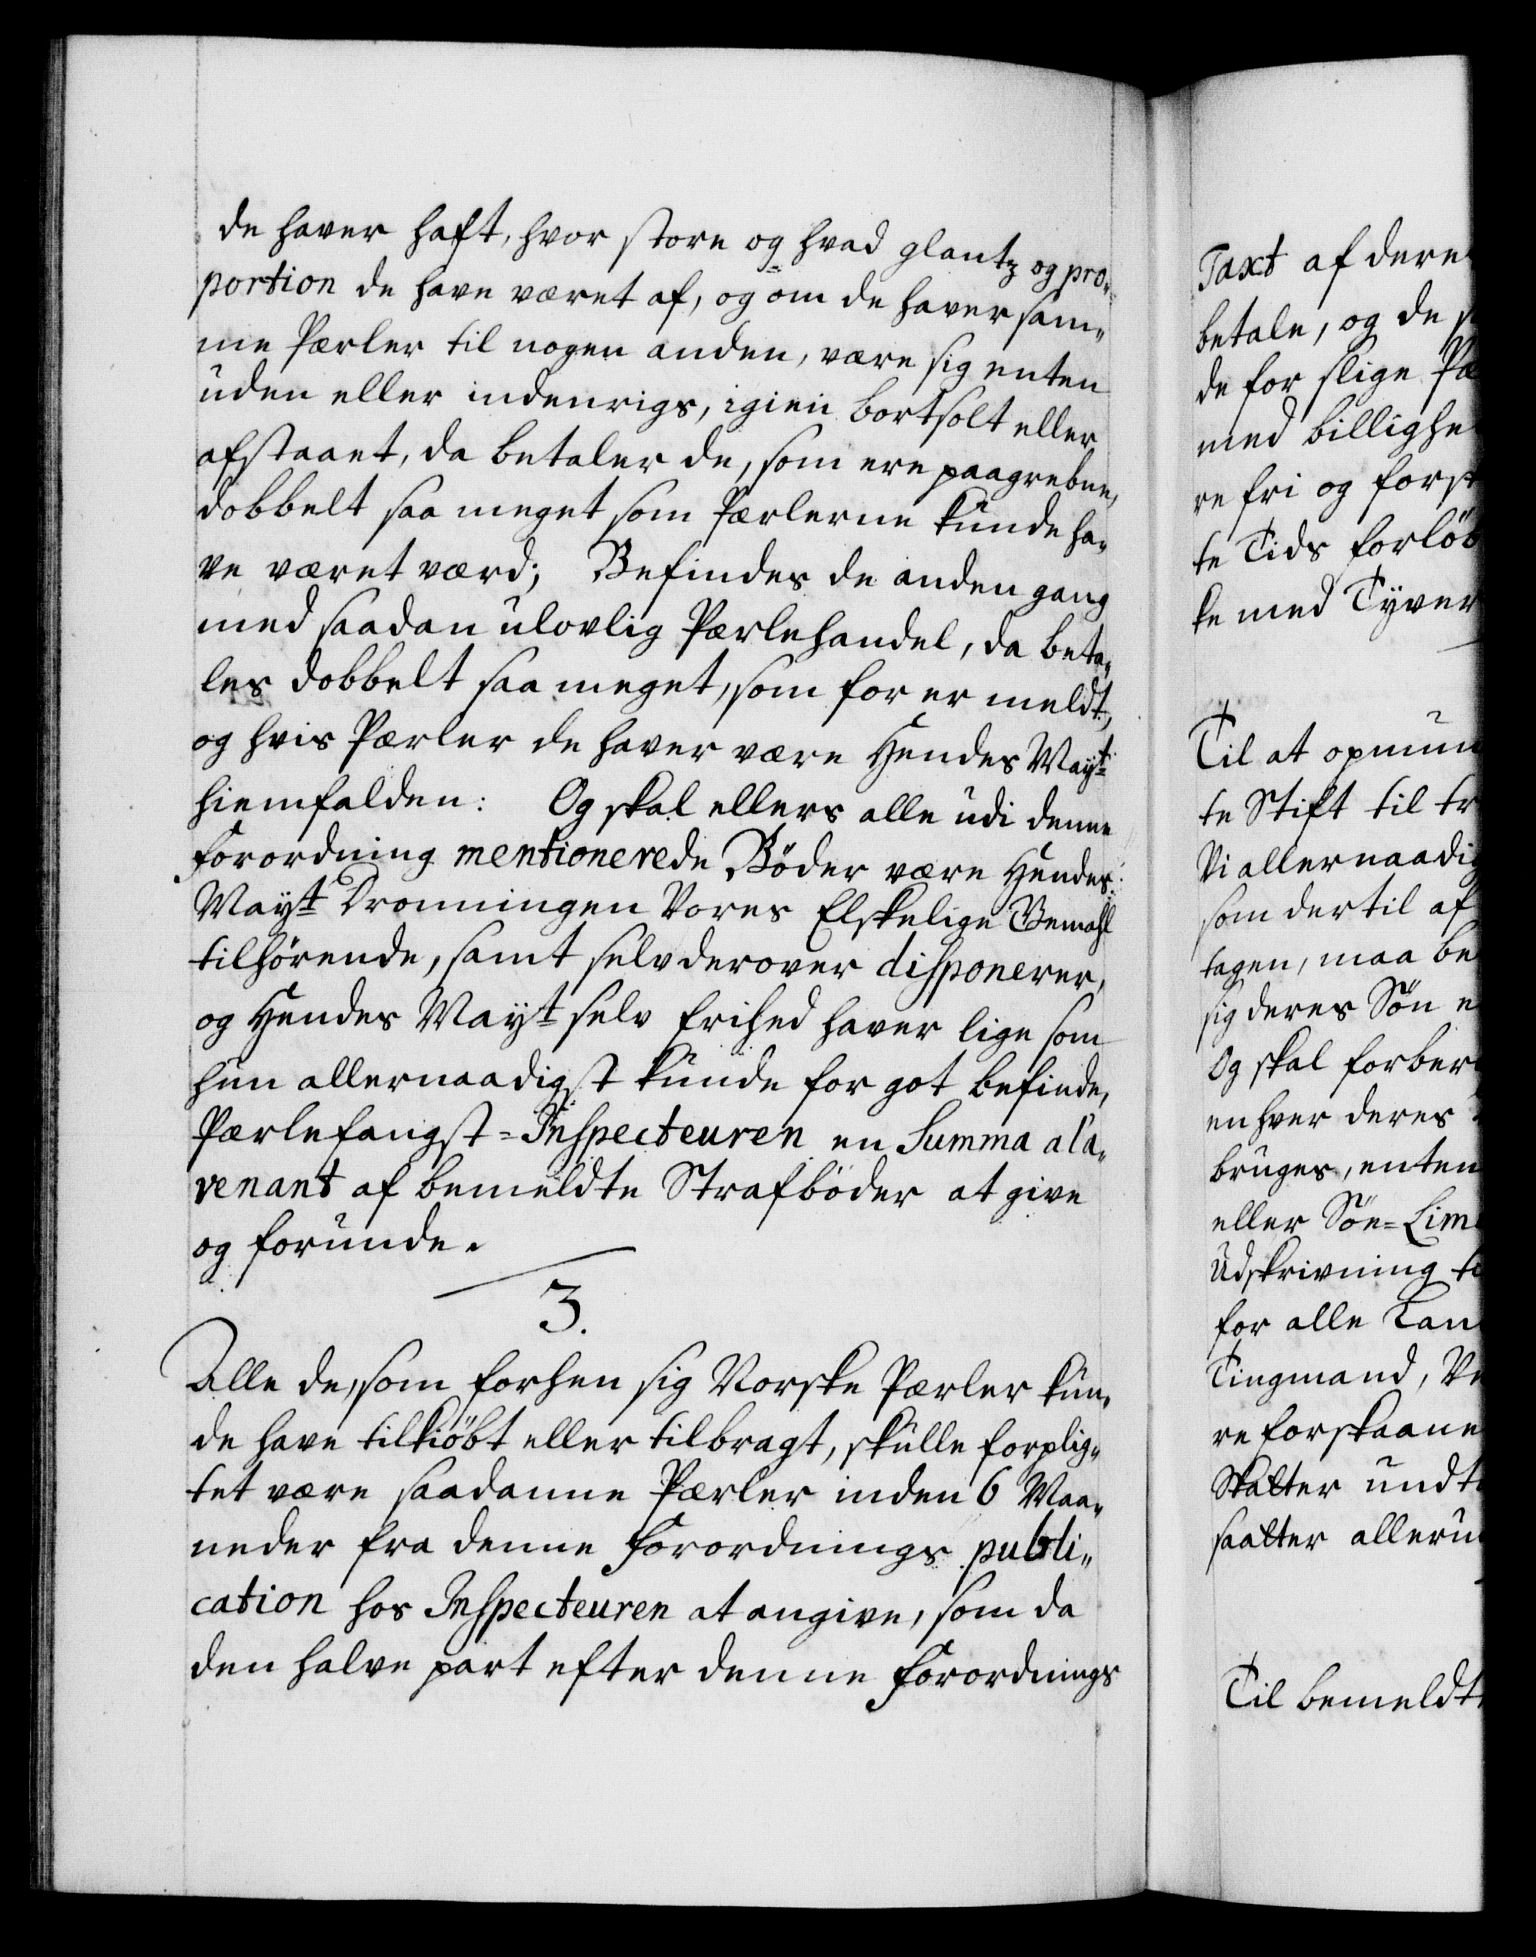 de haver haft, hvor store og hvad glantz og pro-
portion de have været af, og om de haver sam-
me Pærler til nogen anden, være sig enten
uden eller indenrigs, igien bortsolt eller
afstaaet, da betaler de, som ere paagrebne,
dobbelt saa meget som Pærlerne kunde ha-
ve været værd; Befindes de anden gang
med saadan ulovlig Pærlehandel, da beta-
les dobbelt saa meget, som for er meldt,
og hvis Pærler de haver være Hendes Mayt
hiemfalden: Og skal ellers alle udi denne
Forordning mentionerede Bøder være Hendes
Mayt Dronningen Vores Elskelige Gemahl
tilhørende, samt selv derover disponerer,
og Hendes Mayt selv frihed haver lige som
hun allernaadigst kunde for got befinde,
Pærlefangst-Inspecteuren en Summa a l'a-
venant af bemeldte Strafbøder at give
og forunde.
3.
Alle de, som forhen sig Norske Pærler kun-
de have tilkiøbt eller tilbragt, skulle forplig-
tet være saadanne Pærler inden 6 Maa-
neder fra denne Forordnings publi-
cation hos Inspecteuren at angive, som da
den halve part efter denne Forordnings
Taxt af dere
betale, og de
de for slige Pæ
med billighe
re fri og forst
te Tids forløb
ke med Tyver
Til at opmun
te Stift til tr
Vi allernaadig
som dertil af
tagen, maa be
sig deres Søn e
Og skal forber
enhver deres
bruges, enten
eller Søe-Lim
Udskrivning ti
for alle Lan
Tingmand, Ve
re forskaane
Skatter undt
saatter alleru
Til bemeldt